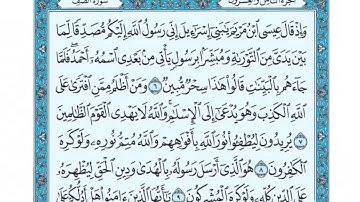 الجزء الثامن والعشرون سورة الصف
وَإِذْ قَالَ عِيسَى ٱبْنُ مَرْيَمَ يَٰبَنِىٓ إِسْرَٰٓءِيلَ إِنِّى رَسُولُ ٱللَّهِ إِلَيْكُم مُّصَدِّقًا لِّمَا
بَيْنَ يَدَىَّ مِنَ ٱلتَّوْرَىٰةِ وَمُبَشِّرًۢا بِرَسُولٍ يَأْتِى مِنۢ بَعْدِى ٱسْمُهُۥٓ أَحْمَدُ ۖ فَلَمَّا
جَآءَهُم بِٱلْبَيِّنَٰتِ قَالُوا۟ هَٰذَا سِحْرٌ مُّبِينٌ ٦ وَمَنْ أَظْلَمُ مِمَّنِ ٱفْتَرَىٰ عَلَى
ٱللَّهِ ٱلْكَذِبَ وَهُوَ يُدْعَىٰٓ إِلَى ٱلْإِسْلَٰمِ ۚ وَٱللَّهُ لَا يَهْدِى ٱلْقَوْمَ ٱلظَّٰلِمِينَ
٧ يُرِيدُونَ لِيُطْفِـُٔوا۟ نُورَ ٱللَّهِ بِأَفْوَٰهِهِمْ وَٱللَّهُ مُتِمُّ نُورِهِۦ وَلَوْ كَرِهَ
ٱلْكَٰفِرُونَ ٨ هُوَ ٱلَّذِىٓ أَرْسَلَ رَسُولَهُۥ بِٱلْهُدَىٰ وَدِينِ ٱلْحَقِّ لِيُظْهِرَهُۥ
عَلَى ٱلدِّينِ كُلِّهِۦ وَلَوْ كَرِهَ ٱلْمُشْرِكُونَ ٩ يَٰٓأَيُّهَا ٱلَّذِينَ ءَامَنُوا۟ هَلْ أَدُلُّكُمْ عَلَىٰ